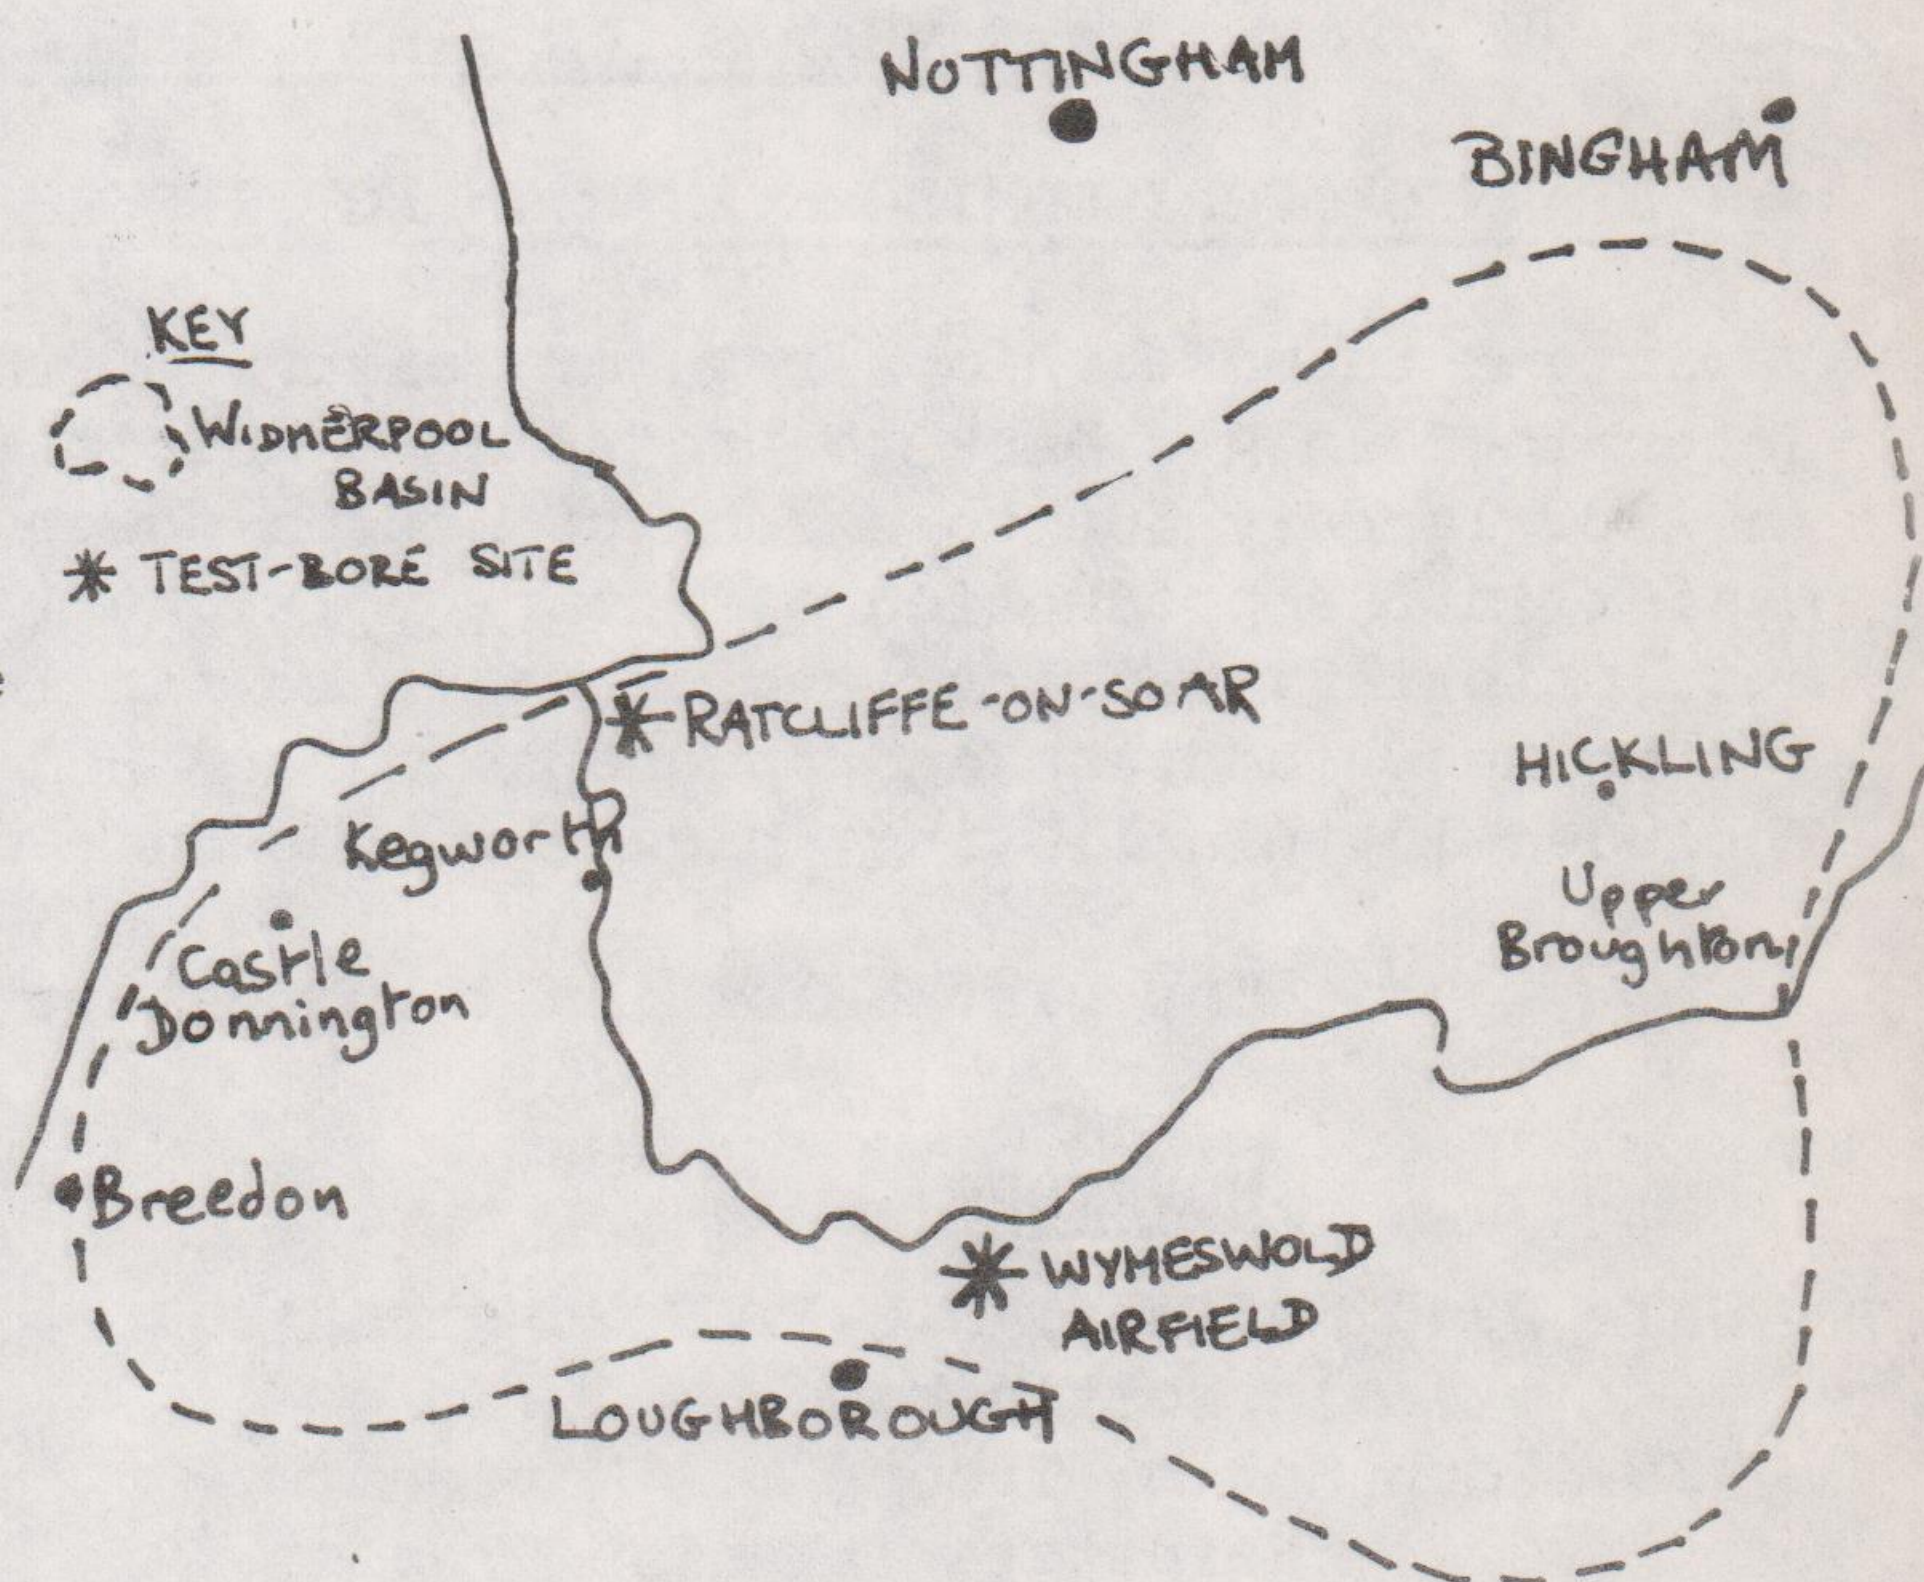 NOTTINGHAM
BINGHAM
KEY
WIDMERPOOL
BASIN
TEST-BORE SITE
RATCLIFFE-ON-SOAR
HICKLING
Kegworth
Upper
Broughton
Castle
Donnington
Breedon
WYMESWOLD
AIRFIELD
LOUGHBOROUGH